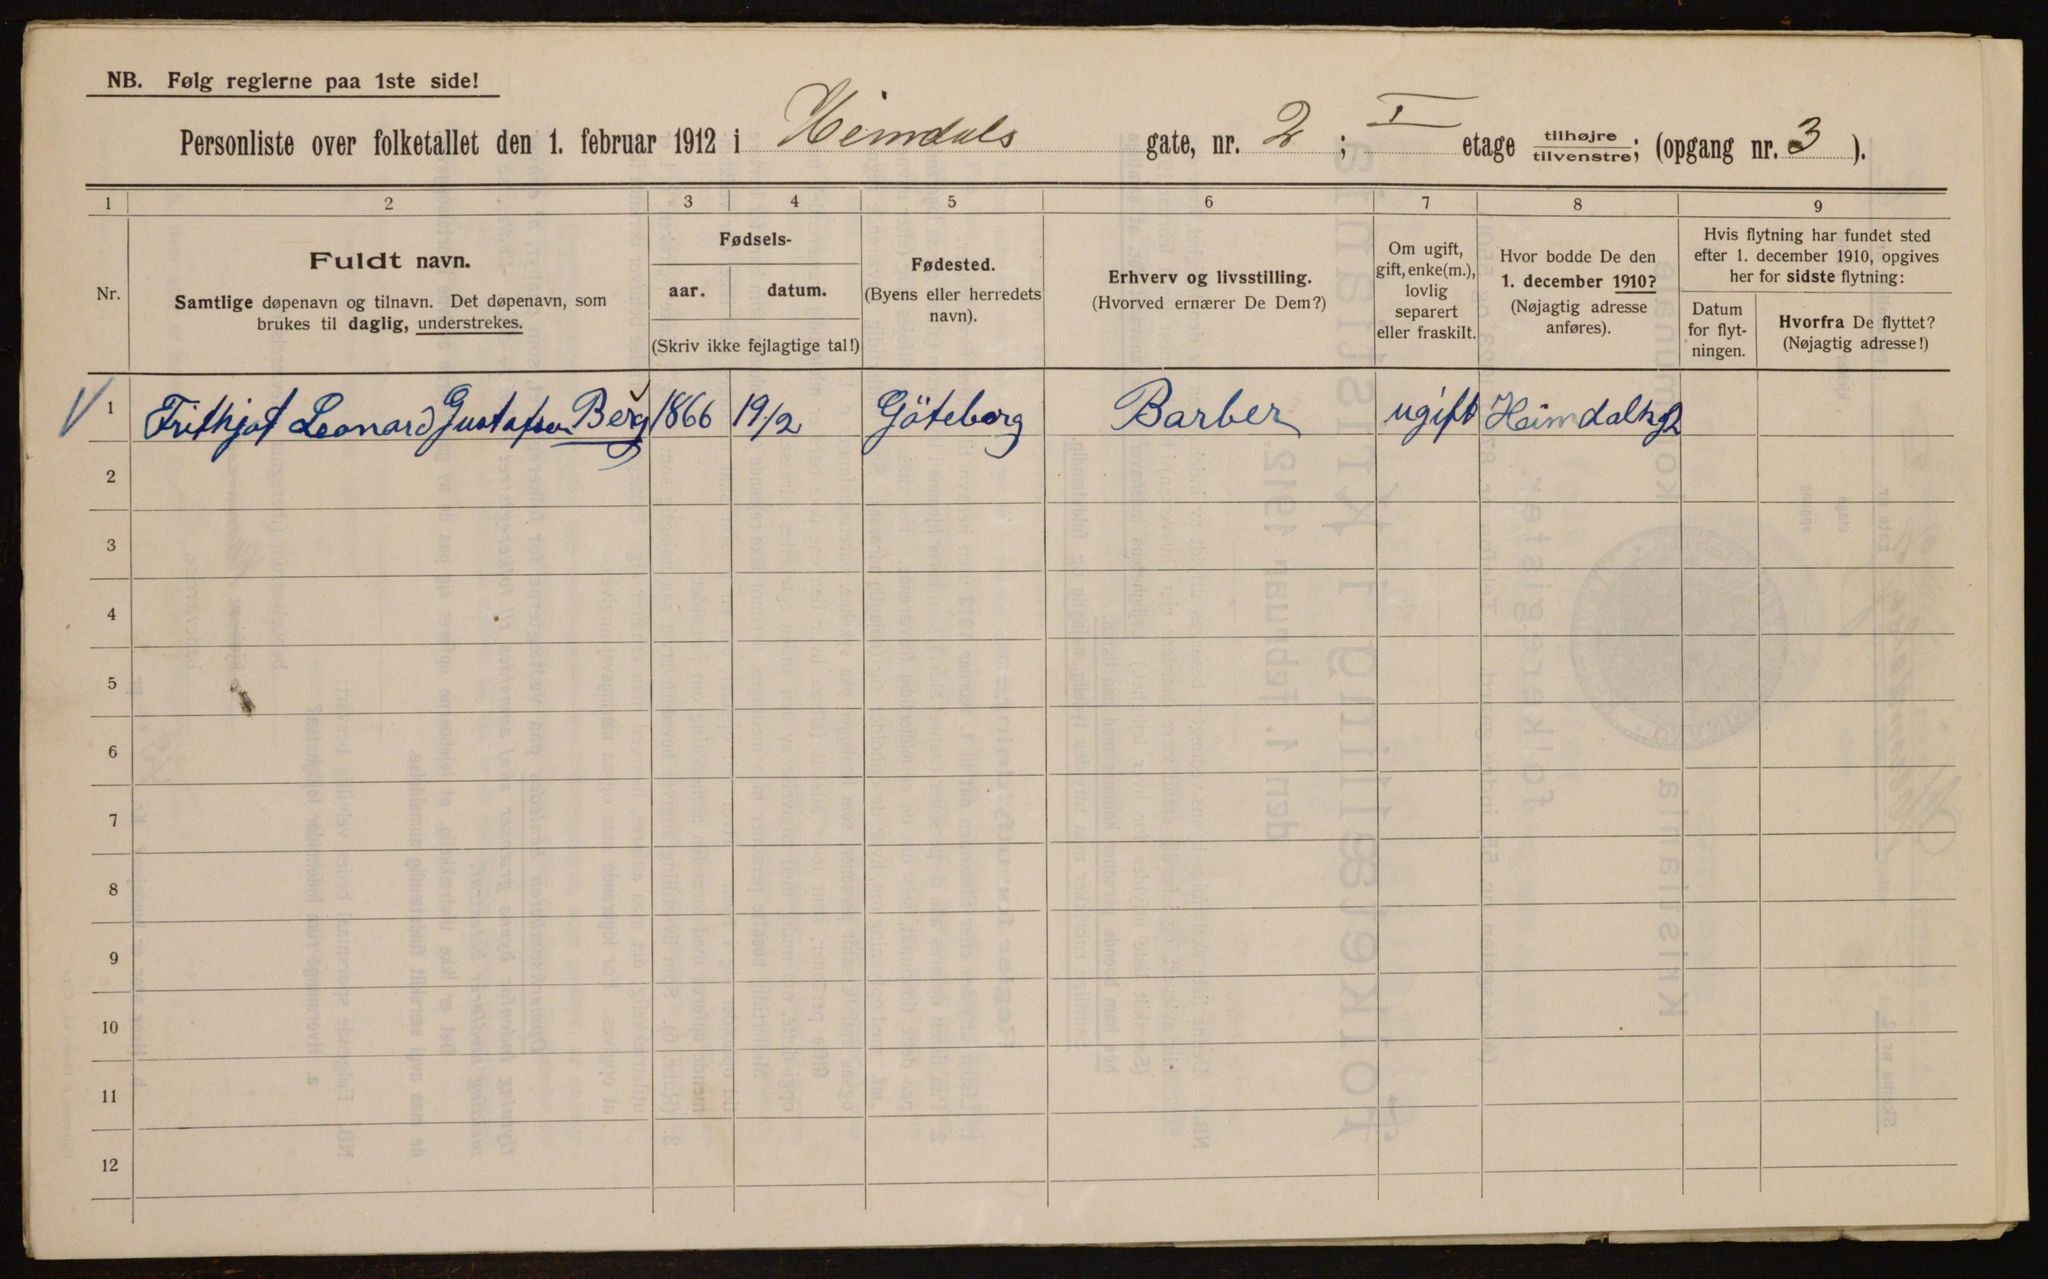 NB. Følg reglerne paa 1ste side!
Personliste over folketallet den 1. februar 1912 i Heimdals gate, nr. 2 ; I etage tilhøjre tilvenstre; (opgang nr. 3 ).
1 2 3 4 5 6 7 8 9
Nr.
Fuldt navn.
Samtlige døpenavn og tilnavn. Det døpenavn, som
brukes til daglig, understrekes.
Fødsels-
aar. datum.
(Skriv ikke fejlagtige tal!)
Fødested.
(Byens eller herredets
navn).
Erhverv og livsstilling.
(Hvorved ernærer De Dem?)
Om ugift,
gift, enke(m.),
lovlig
separert
eller fraskilt.
Hvor bodde De den
1. december 1910?
(Nøjagtig adresse
anføres).
Hvis flytning har fundet sted
efter 1. december 1910, opgives
her for sidste flytning:
Datum
for flyt-
ningen.
Hvorfra De flyttet?
(Nøjagtig adresse!)
1 Frithjof Leonard Gustafson Berg 1866 19/2 Göteborg Barber ugift Heimdalsg 2
2
3
4
5
6
7
8
9
10
11
12